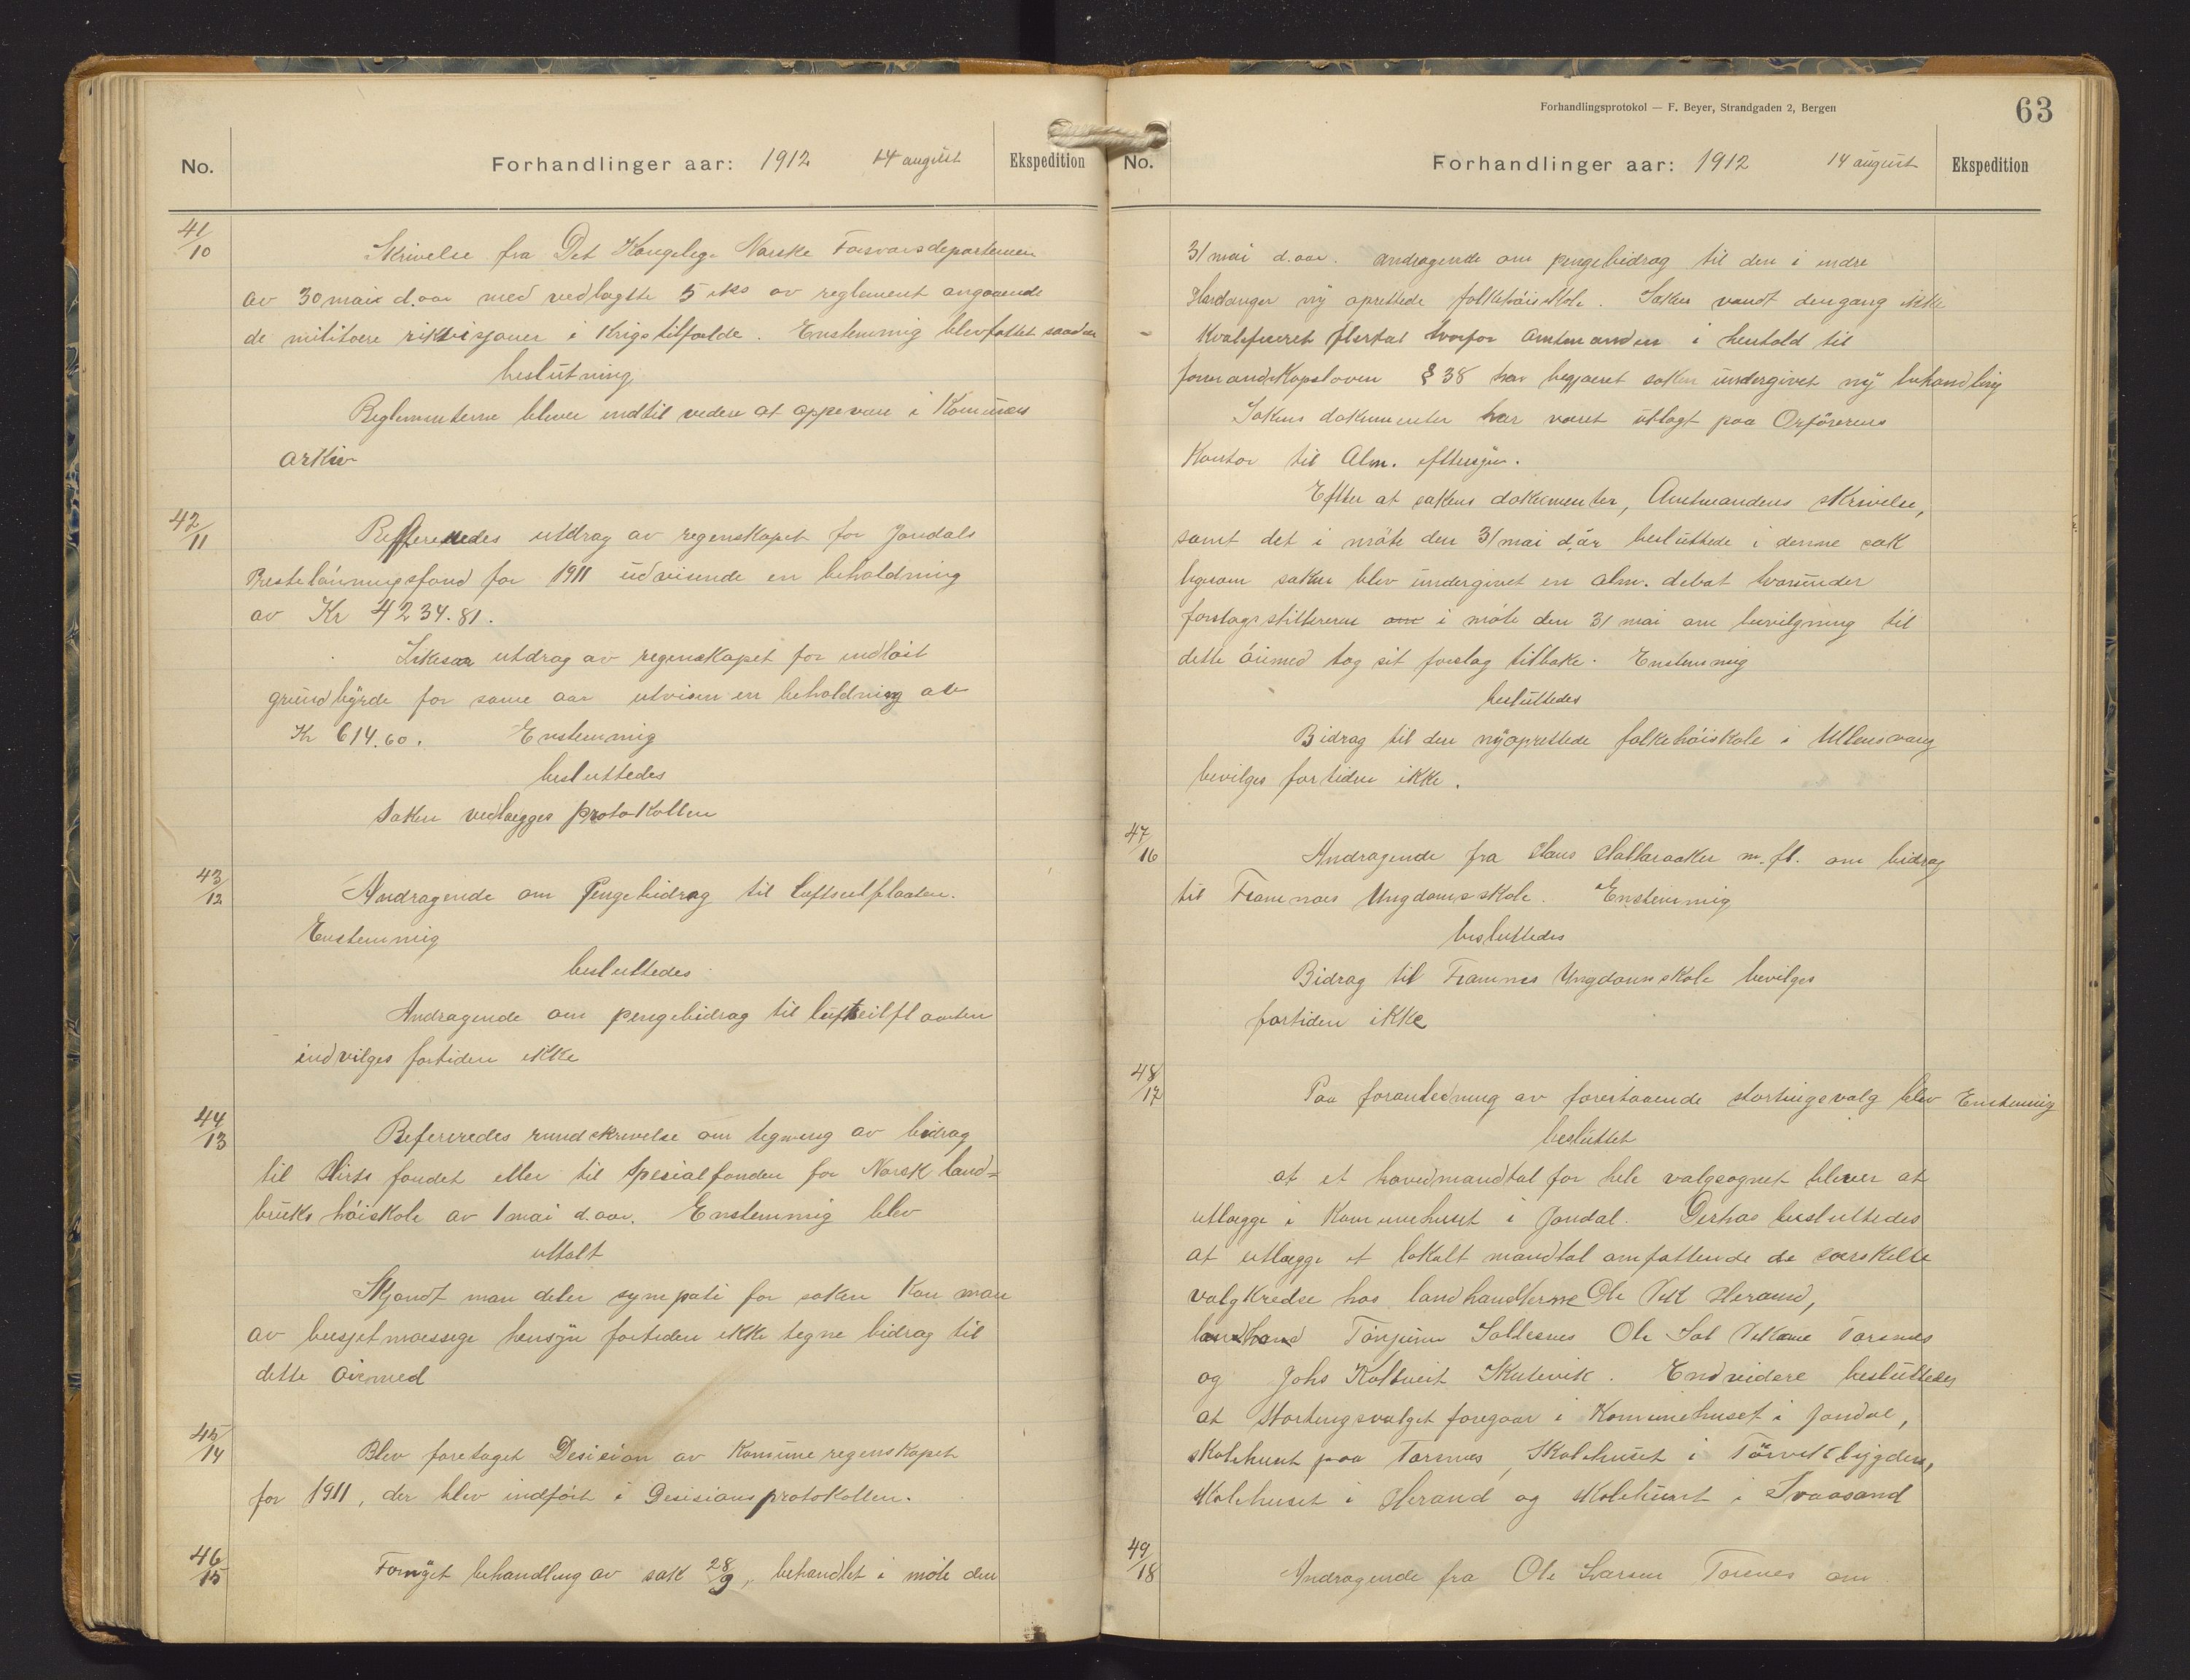 No.
Forhandlinger aar: 1912 14 august
Ekspedition
41/10
Skrivelse fra Det Kongelege Norske Forsvarsdepartemen
av 30 mai d.aar med vedlagtte 5 eks av reglement angaaende
de militære rikvisjoner i Krigstilfælde. Enstemmig blev fattet saadan
beslutning
Reglementerne blever indtil videre at oppevare i Komunens
arkiv
42/11
Reffereredes utdrag av regenskapet for Jondals
Prestelönningsfond for 1911 udvisende en beholdning
av Kr 4234.81.
Likesaa utdrag av regenskapet for indlöst
grundbyrde for same aar utvisen en beholdning av
Kr 614.60. Enstemmig
besluttedes
Saken vedlægges protokollen
43/12
Andragende om Pengebidrag til Luftseilflaaten.
Enstemmig
besluttedes
Andragende om pengebidrag til luftseilflaaten
indvilges fortiden ikke
44/13
Refereredes rundskrivelse om tegning av bidrag
til Hirts fondet eller til Spesialfonden for Norsk land=
bruks höiskole av 1 mai d.aar. Enstemmig blev
uttalt
Skjondt man deler sympati for saken Kan man
av busjetmæssege hensyn fortiden ikke tegne bidrag til
dette öiemed
45/14
Blev foretaget Desision av Komune regenskapet
for 1911, der blev indfört i Desisionsprotokollen.
46/15
Fornyet behandling av sak 28/9, behandlet i möte den
Forhandlingsprotokol — F. Beyer, Strandgaden 2, Bergen
63
No.
Forhandlinger aar: 1912 14 august
Ekspedition
31 mai d.aar. andragende om pengebidrag til den i indre
Hardanger ny oprettede folkehöiskole. Saken vandt dengang ikke
Kvalefiseret flertal hvorfor Amtmanden i henhold til
formandskapsloven § 38 har begjæret saken undergivet ny behandling
Sakens dokumenter har været utlagt paa Orförerens
Kontor til Alm. eftersyn.
Efter at sakens dokumenter, Amtmandens skrivelse,
samt det i möte den 31 mai d.år besluttede i denne sak
ligesom saken blev undergivet en alm. debat hvorunder
forslagsstillerene om i möte den 31 mai om bevilgning til
dette öiemed tog sit forslag tilbake. Enstemmig
besluttedes
Bidrag til den nyoprettede folkehöiskole i Ullensvang
bevilges fortiden ikke.
47/16
Andragende fra Hans Hallaraaker m.fl. om bidrag
til Framnæs Ungdomsskole. Enstemmig
besluttedes
Bidrag til Framnes Ungdomsskole bevilges
fortiden ikke
48/17
Paa foranledning av forestaaende stortingsvalg blev Enstemmig
besluttet
at et hovedmandtal for hele valgsognet blever at
utlægge i Komunehuset i Jondal. Derhos besluttedes
at utlægge et lokalt mandtal omfattende de særskelte
valgkredse hos landhandlerne Ole Vik Herand,
landhand Tönjum Solesnes Ole Sal Vikane Torsnes
og Johs Kolltveit Skutevik. Endvidere besluttedes
at Stortingsvalget foregaar i Komunehuset i Jondal,
skolehuset paa Torsnes, Skolehuset i Törvikbygden,
skolehuset i Herand og skolehuset i Svaasand
49/18
Andragende fra Ole Larsen Torsnes om